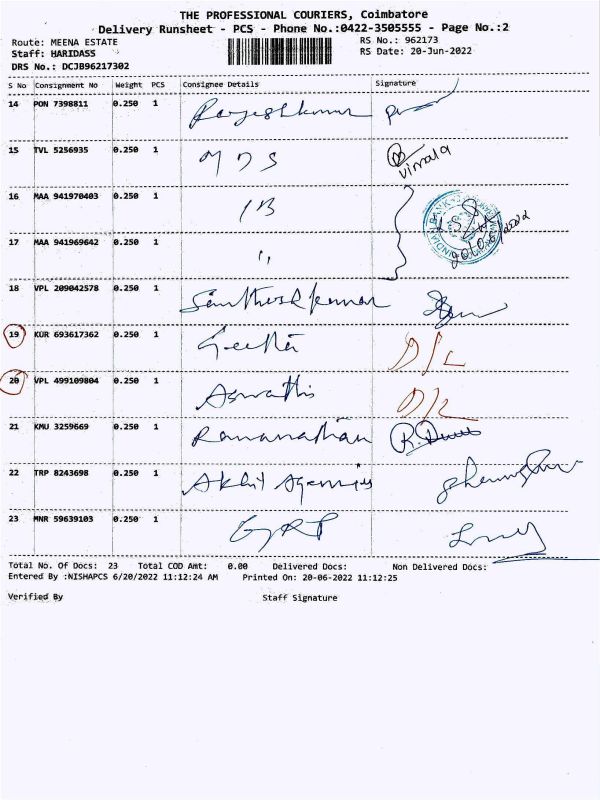 THE PROFESSIONAL COURIERS, Coimbatore
Delivery Runsheet - PCS - Phone No.:0422-3505555 - Page No.:2
Route: MEENA ESTATE RS No.: 962173
Staff: HARIDASS RS Date: 20-Jun-2022
DRS No.: DCJB96217302
S No Consignment No Weight PCS Consignee Details Signature
14 PON 7398811 0.250 1 Rajeshkumar
15 TVL 5256935 0.250 1 MDS Vimala
16 MAA 941970403 0.250 1 IB
17 MAA 941969642 0.250 1 ''
18 VPL 209042578 0.250 1 Santhoshkumar
19 KUR 693617362 0.250 1 Geetha D/L
20 VPL 499109804 0.250 1 Aswathi D/L
21 KMU 3259669 0.250 1 Ramanathan
22 TRP 8243698 0.250 1 Akhil Agencies
23 MNR 59639103 0.250 1 GRT
Total No. Of Docs: 23 Total COD Amt: 0.00 Delivered Docs: Non Delivered Docs:
Entered By :NISHAPCS 6/20/2022 11:12:24 AM Printed On: 20-06-2022 11:12:25
Verified By Staff Signature